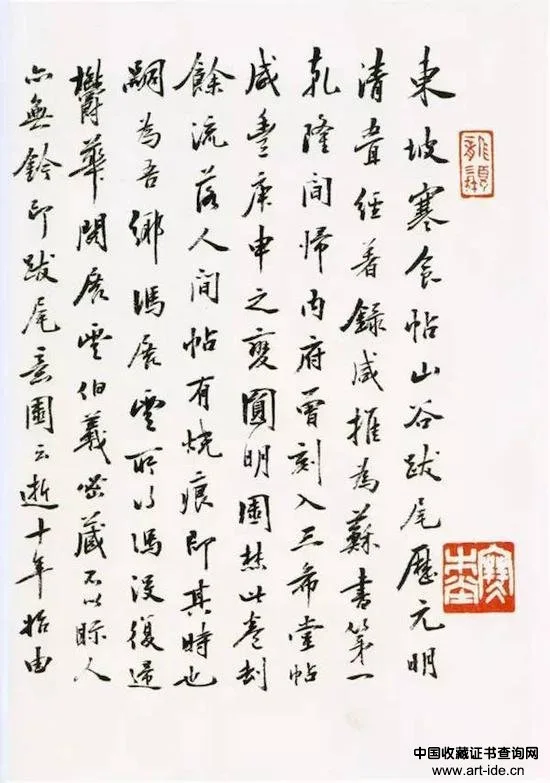 東坡寒食帖山谷跋尾歷元明
清疊經著錄咸推為蘇書第一
乾隆間歸內府曾刻入三希堂帖
咸豐庚申之變圓明園焚此卷劫
餘流落人間帖有燒痕即其時也
嗣為吾鄉馮展雲所得馮沒復歸
鬱華閣展雲伯羲密藏不以眎人
亦無鈐印跋尾意園云逝十年始由
中国收藏证书查询网
www.art-ide.cn